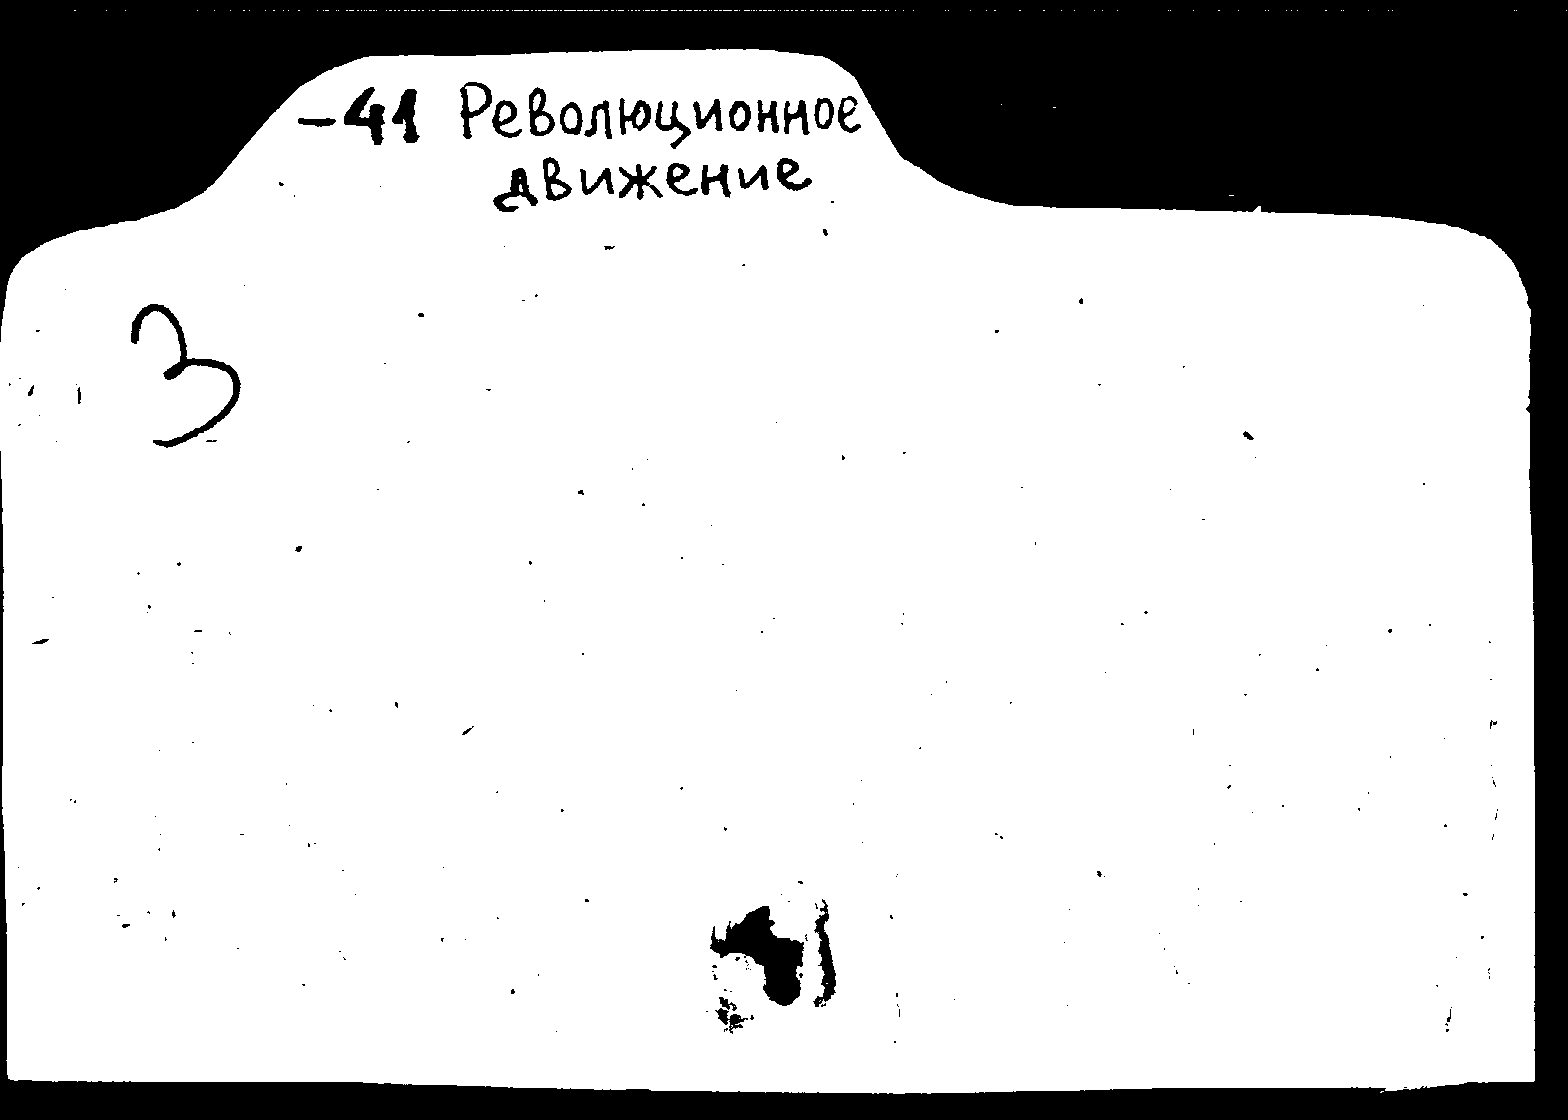 -41 Революционное
движение
3